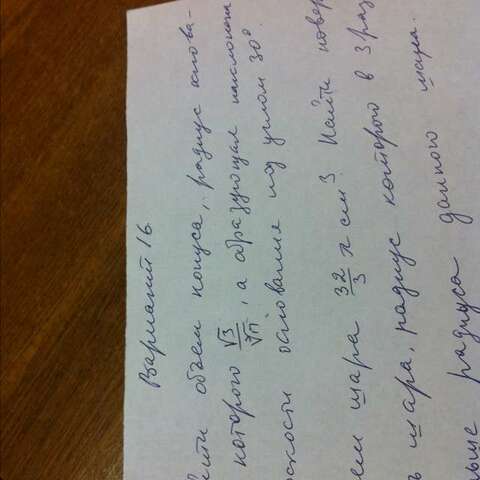 Вариант 16.
йти объем конуса, радиус основа-
которого √3/∛π, а образующая наклонена
оскости основания под углом 30°
ем шара 32/3 π см³. Найти повер
ь шара, радиус которого в 3 раз
льше радиуса данного шара.